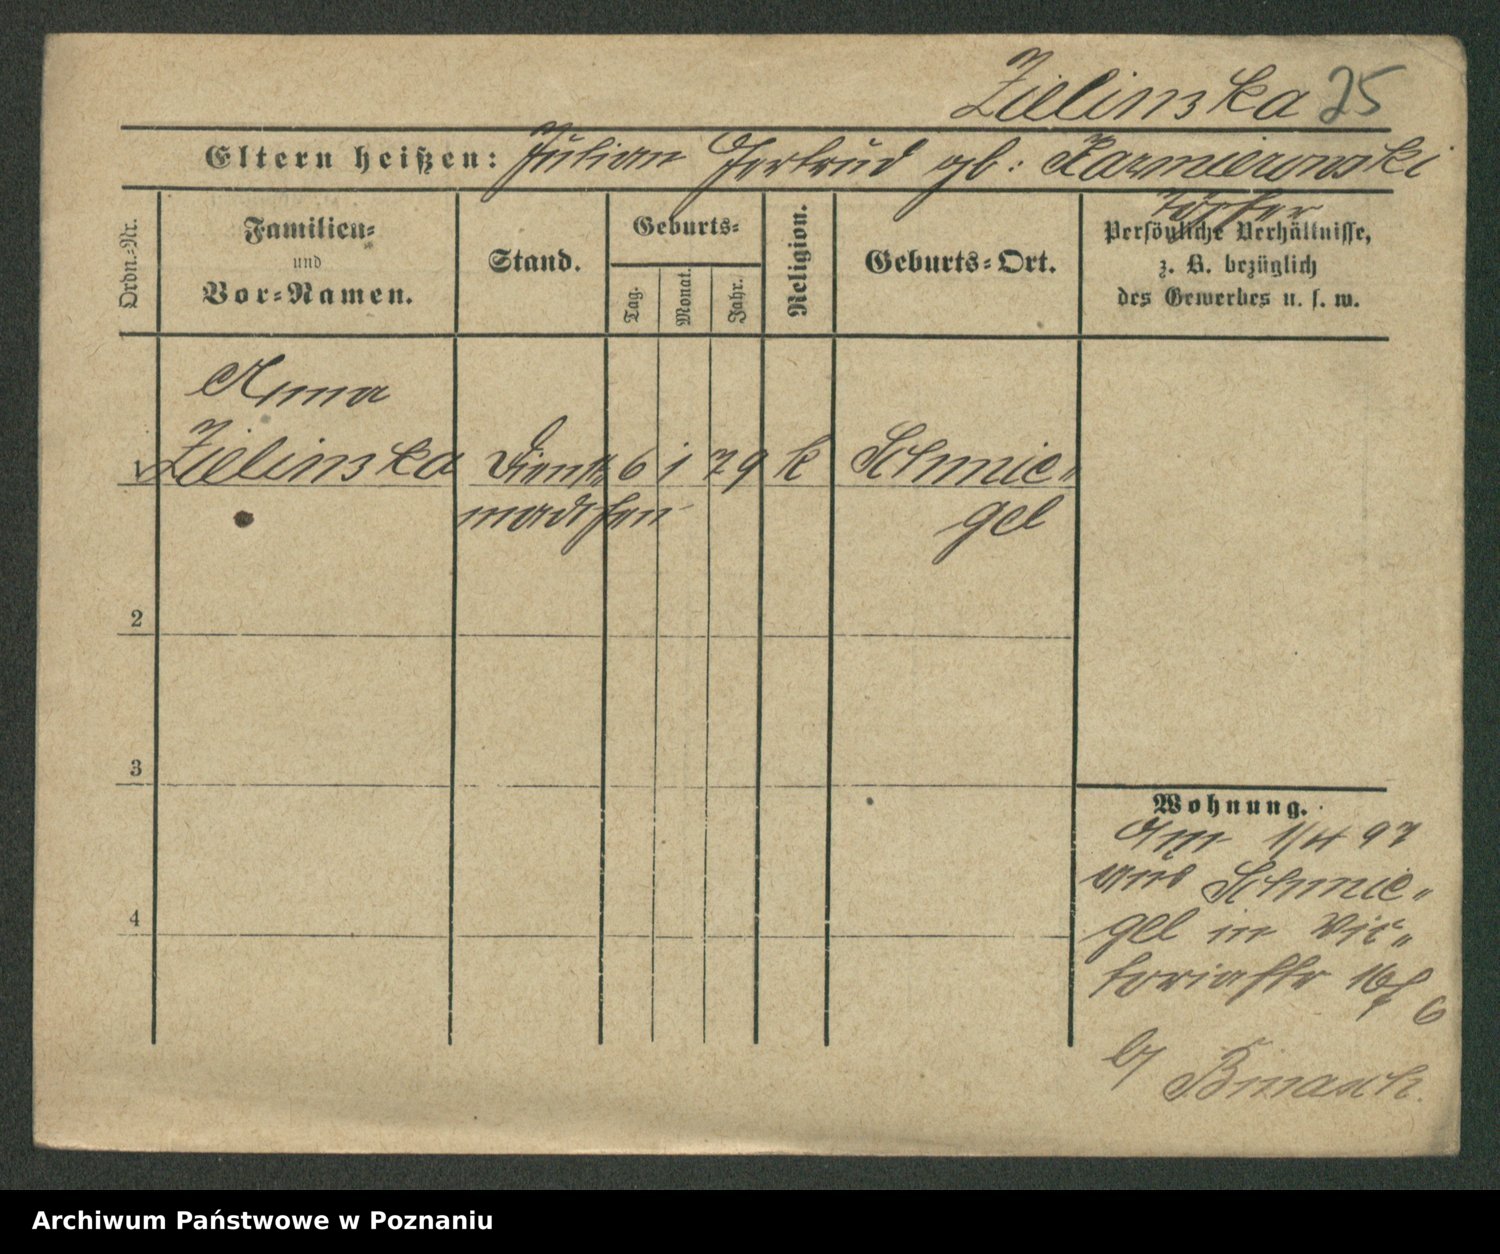 Zielinska 25
Eltern heißen: Julian Gertrud gb: Kazmierowski
Töpfer
Ordn.-Nr.
Familien-
und
Vor-Namen.
Stand.
Geburts-
Tag.
Monat.
Jahr.
Religion.
Geburts-Ort.
Persönliche Verhältnisse,
z. B. bezüglich
des Gewerbes u. s. w.
Anna
1 Zielinska Dienst 6 1 79 k Schmie"
mädchen gel
2
3
4
Wohnung.
Am 1/4 97
aus Schmie"
gel in Vic"
toriastr 16
6
b/
Archiwum Państwowe w Poznaniu